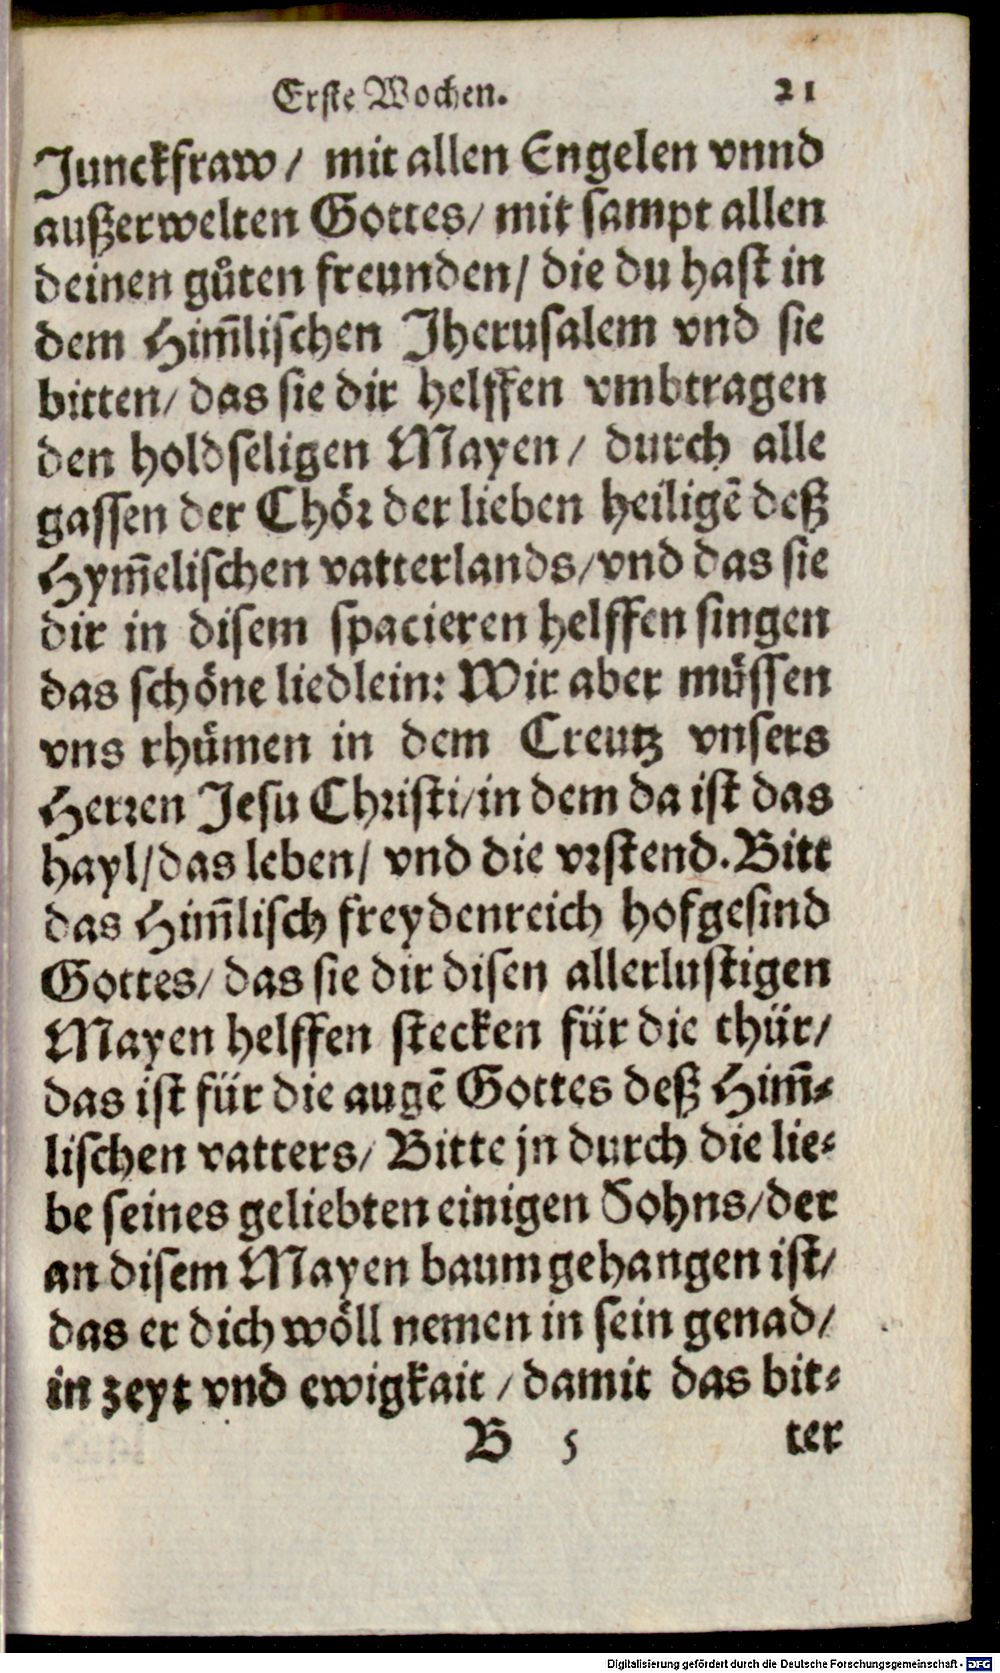 Erste Wochen. 21
Junckfraw/ mit allen Engelen vnnd
außerwelten Gottes/ mit sampt allen
deinen gůten freunden/ die du hast in
dem Him̃lischen Jherusalem vnd sie
bitten/ das sie dir helffen vmbtragen
den holdseligen Mayen/ durch alle
gassen der Chör der lieben heiligẽ deß
Hym̃elischen vatterlands/vnd das sie
dir in disem spacieren helffen singen
das schöne liedlein: Wir aber müssen
vns rhümen in dem Creutz vnsers
Herren Jesu Christi/in dem da ist das
hayl/das leben/ vnd die vrstend. Bitt
das Him̃lisch freydenreich hofgesind
Gottes/ das sie dir disen allerlustigen
Mayen helffen stecken für die thür/
das ist für die augẽ Gottes deß Him̃-
lischen vatters/ Bitte jn durch die lie-
be seines geliebten einigen Sohns/der
an disem Mayen baum gehangen ist/
das er dich wöll nemen in sein genad/
in zeyt vnd ewigkait/ damit das bit-
B 5 ter
Digitalisierung gefördert durch die Deutsche Forschungsgemeinschaft - DFG